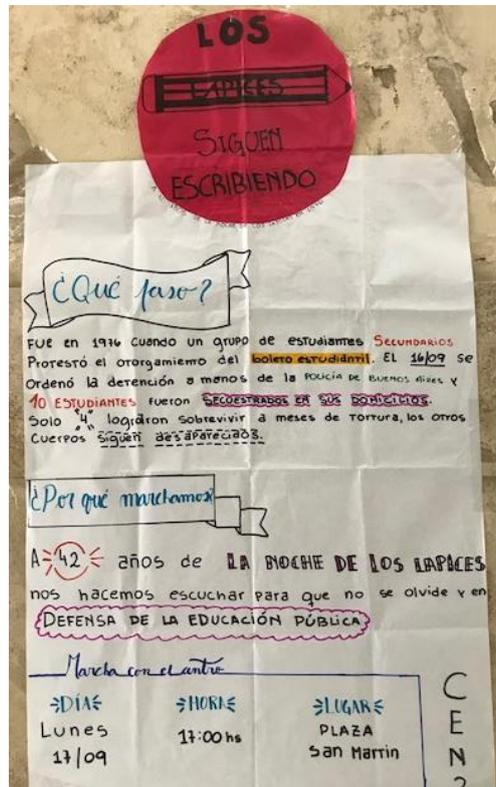 LOS
LAPICES
SIGUEN
ESCRIBIENDO
¿Qué paso?
FUE en 1976 cuando un grupo de estudiantes SECUNDARIOS
Protestó el otorgamiento del boleto estudiantil. EL 16/09 se
Ordenó la detención a manos de la POLICIA DE BUENOS AIRES Y
10 ESTUDIANTES fueron SECUESTRADOS EN SUS DOMICILIOS.
Solo "4" lograron sobrevivir a meses de tortura, los otros
Cuerpos siguen desaparecidos.
¿Por qué marchamos?
A 42 años de LA NOCHE DE LOS LAPICES
nos hacemos escuchar para que no se olvide y en
DEFENSA DE LA EDUCACIÓN PÚBLICA
Marcha con el antro
DÍA
HORA
LUGAR
Lunes
17:00 hs
PLAZA
17/09
San Martin
C
E
N